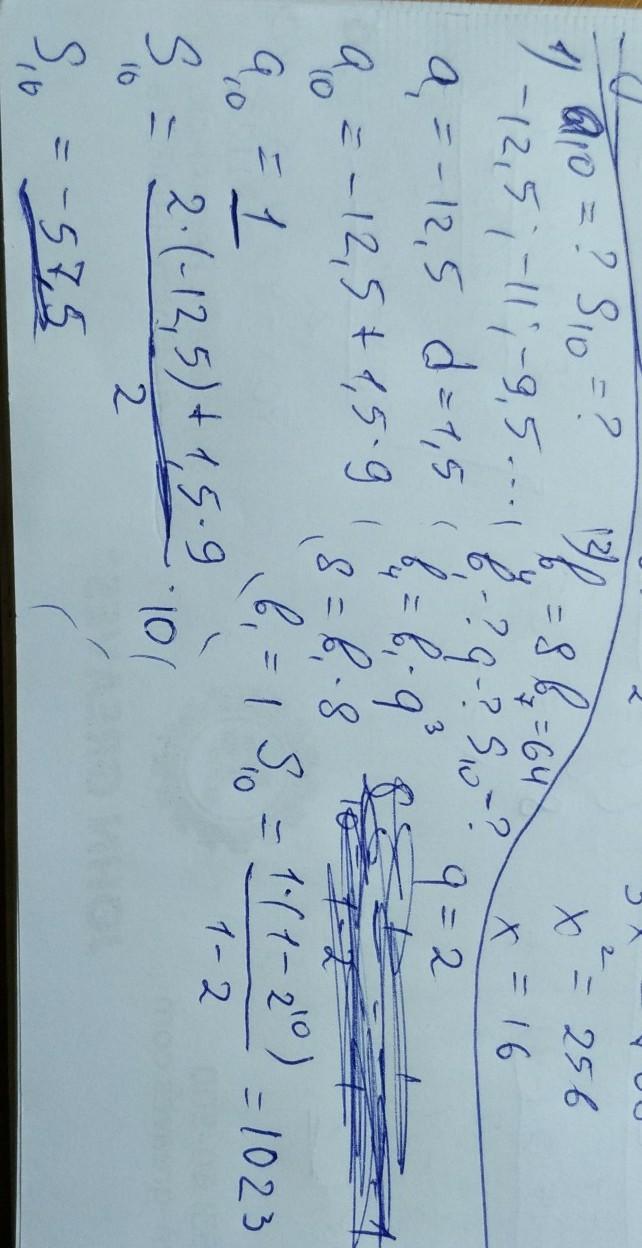 1) a₁₀ = ? S₁₀ = ?
-12,5; -11; -9,5...
a₁ = -12,5 d = 1,5
a₁₀ = -12,5 + 1,5·9
a₁₀ = 1
S₁₀ = (2·(-12,5) + 1,5·9)/2 · 10
S₁₀ = -57,5
12) b₄ = 8 b₇ = 64
b₁ - ? q - ? S₁₀ - ?
b₄ = b₁·q³ q = 2
8 = b₁·8
b₁ = 1 S₁₀ = 1·(1-2¹⁰)/(1-2) = 1023
x² = 256
x = 16